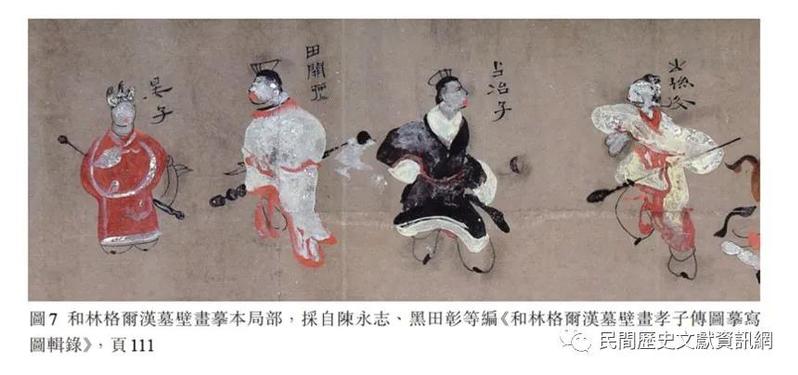 晏子
田開
冶子
圖7 和林格爾漢墓壁畫摹本局部，採自陳永志、黑田彰等編《和林格爾漢墓壁畫孝子傳圖摹寫
圖輯錄》，頁111
民間歷史文獻資訊網